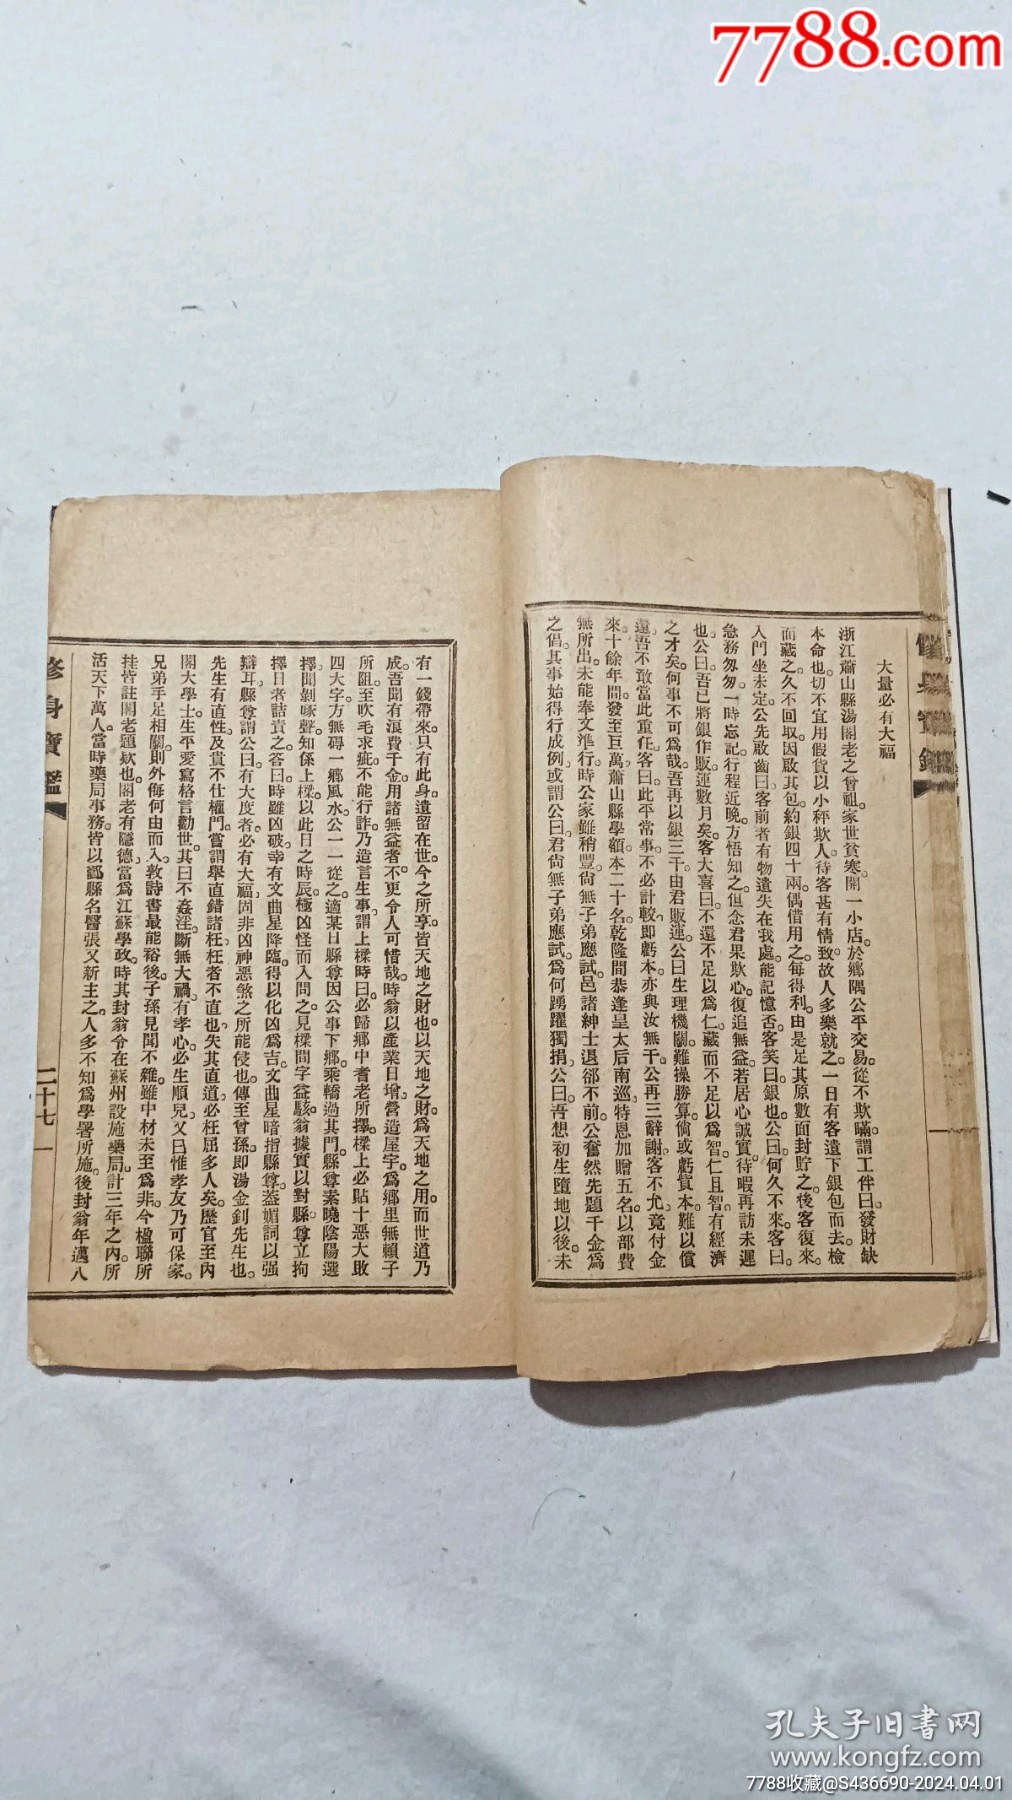 7788.com
大量必有大福
浙江蕭山縣湯閣老之曾祖。家世貧寒。開一小店。於鄉隅公平交易。從不欺瞞。謂工伴曰。發財缺
本命也。切不宜用假貨以小秤欺人。待客甚有情致。故人多樂就之。一日有客遺下銀包而去。檢
而藏之。久不回取。因啟其包。約銀四十兩。偶借用之。每得利。由是足其原數。面封貯之。後客復來。
入門坐未定。公先啟齒曰。客前者有物遺失在我處。能記憶否。客笑曰。銀也。公曰。何久不來。客曰。
急務匆匆。一時忘記。行程近晚。方悟知之。但念君果欺心。復追無益。若居心誠實。待暇再訪未遲
也。公曰。吾已將銀作販運數月矣。客大喜曰。不還不足以爲仁。藏而不足以爲智。仁且智。有經濟
之才矣。何事不可爲哉。吾再以銀三千。由君販運。公曰。生理機關。難操勝算。倘或虧貲本。難以償
還。吾不敢當此重任。客曰。此平常事。不必計較。即虧本。亦與汝無干。公再三辭謝。客不允。竟付金
來。十餘年間。發至巨萬。蕭山縣學額本二十名。乾隆間恭逢皇太后南巡。特恩加贈五名。以部費
無所出。未能奉文準行。時公家雖稍豐。尚無子弟應試。邑諸紳士退郤不前。公奮然先題千金爲
之倡。其事始得行成例。或謂公曰。君尙無子弟應試。爲何踴躍獨捐。公曰。吾想初生墮地以後。未
有一錢帶來。只有此身遺留在世。今之所享。皆天地之財也。以天地之財。爲天地之用。而世道乃
成。吾聞有浪費千金。用諸無益者。不更令人可惜哉。時翁以產業日增。營造屋宇。爲鄉里無賴子
所阻。至吹毛求疵。不能行詐。乃造言生事。謂上樑時日。必歸鄉中耆老所擇。樑上必貼十惡大敗
四大字。方無碍一鄉風水。公一一從之。適某日縣尊因公事下鄉。乘轎過其門。縣尊素曉陰陽選
擇。聞剝啄聲。知係上樑。以此日之時辰極凶。怪而入問之。見樑間字益駭。翁據實以對。縣尊立拘
擇日者詰責之。答曰。時雖凶破。幸有文曲星降臨。得以化凶爲吉。文曲星暗指縣尊。葢媚詞以强
辯耳。縣尊謂公曰。有大度者。必有大福。固非凶神惡煞之所能侵也。傳至曾孫。即湯金釗先生也。
先生有直性。及貴不仕權門。嘗謂舉直錯諸枉。枉者不直也。失其直道。必枉屈多人矣。歷官至內
閣大學士。生平愛寫格言勸世。其曰不姦淫。斷無大禍。有孝心。必生順兒。又曰惟孝友乃可保家。
兄弟手足相關。則外侮何由而入。敦詩書最能裕後。子孫見聞不雜。雖中材未至爲非。今楹聯所
挂。皆註閣老題欵也。閣老有隱德。當爲江蘇學政時。其封翁令在蘇州設施藥局。計三年之內。所
活天下萬人。當時藥局事務。皆以鄰縣名醫張又新主之。人多不知爲學署所施。後封翁年邁八
修身寶鑑
二十七
孔夫子旧書网
www.kongfz.com
7788收藏@S436690-2024.04.01